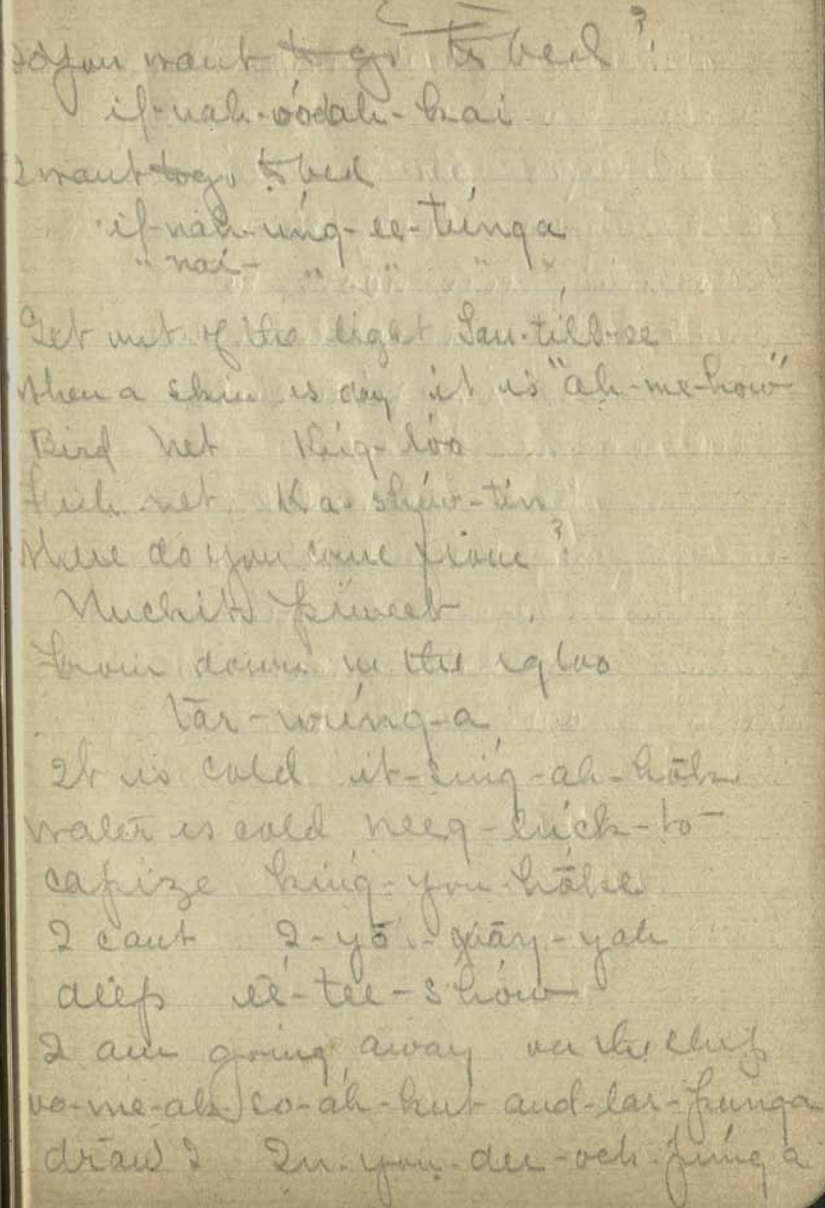 Do you want to go to bed?
if-nah-oodah-kai
I want to go to bed
if-nah-ung-ee-tunga
" nai- " " " "
Get out of the light San-till-ee
When a skin is dry it is "ah-me-how"
Bird net Kig-loo
Fish net Ka-shaw-tin
Where do you come from?
Nuchik
From down in the igloo
tar-wung-a
It is cold it-zing-ah-hok
Water is cold neeg-luck-to
capize king-you-hake
I cant I-yo-quay-yah
deep ee-tee-show
I am going away on the ship
oo-me-ak-so-ah-kut aud-lar-punga
draw I In-you-dee-och-punga